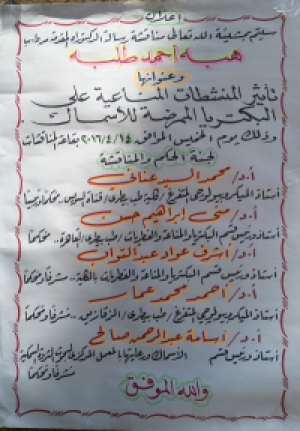 إعلان
سيتم بمشيئة الله تعالى مناقشة رسالة الدكتوراه المقدمة من ط.ب
هبه أحمد طلبه
وعنوانها
تأثير المنشطات المناعية على
البكتريا الممرضة للأسماك
وذلك يوم الخميس الموافق ٢٠١٦/٤/١٤ بقاعة المناقشات
لجنة الحكم والمناقشة
أ.د/ محمد السيد عنانى
أستاذ الميكروبيولوجى المتفرغ / كلية طب بيطرى / قناة السويس
أ.د/ منى إبراهيم حسن
أستاذ ورئيس قسم البكتريا والمناعة والفطريات / طب بيطرى / القاهرة.. محكماً
أ.د/ أشرف عواد عبد التواب
أستاذ ورئيس قسم البكتريا والمناعة والفطريات بالهيئة.. مشرفاً ومحكماً
أ.د/ أحمد محمد عمار
أستاذ الميكروبيولوجى المتفرغ / طب بيطرى / الزقازيق.. مشرفاً ومحكماً
أ.د/ أسامة عبد الرحمن صالح
أستاذ ورئيس قسم الأسماك ورعايتها بالمعمل المركزى لبحوث الثروة السمكية
مشرفاً ومحكماً
والله الموفق